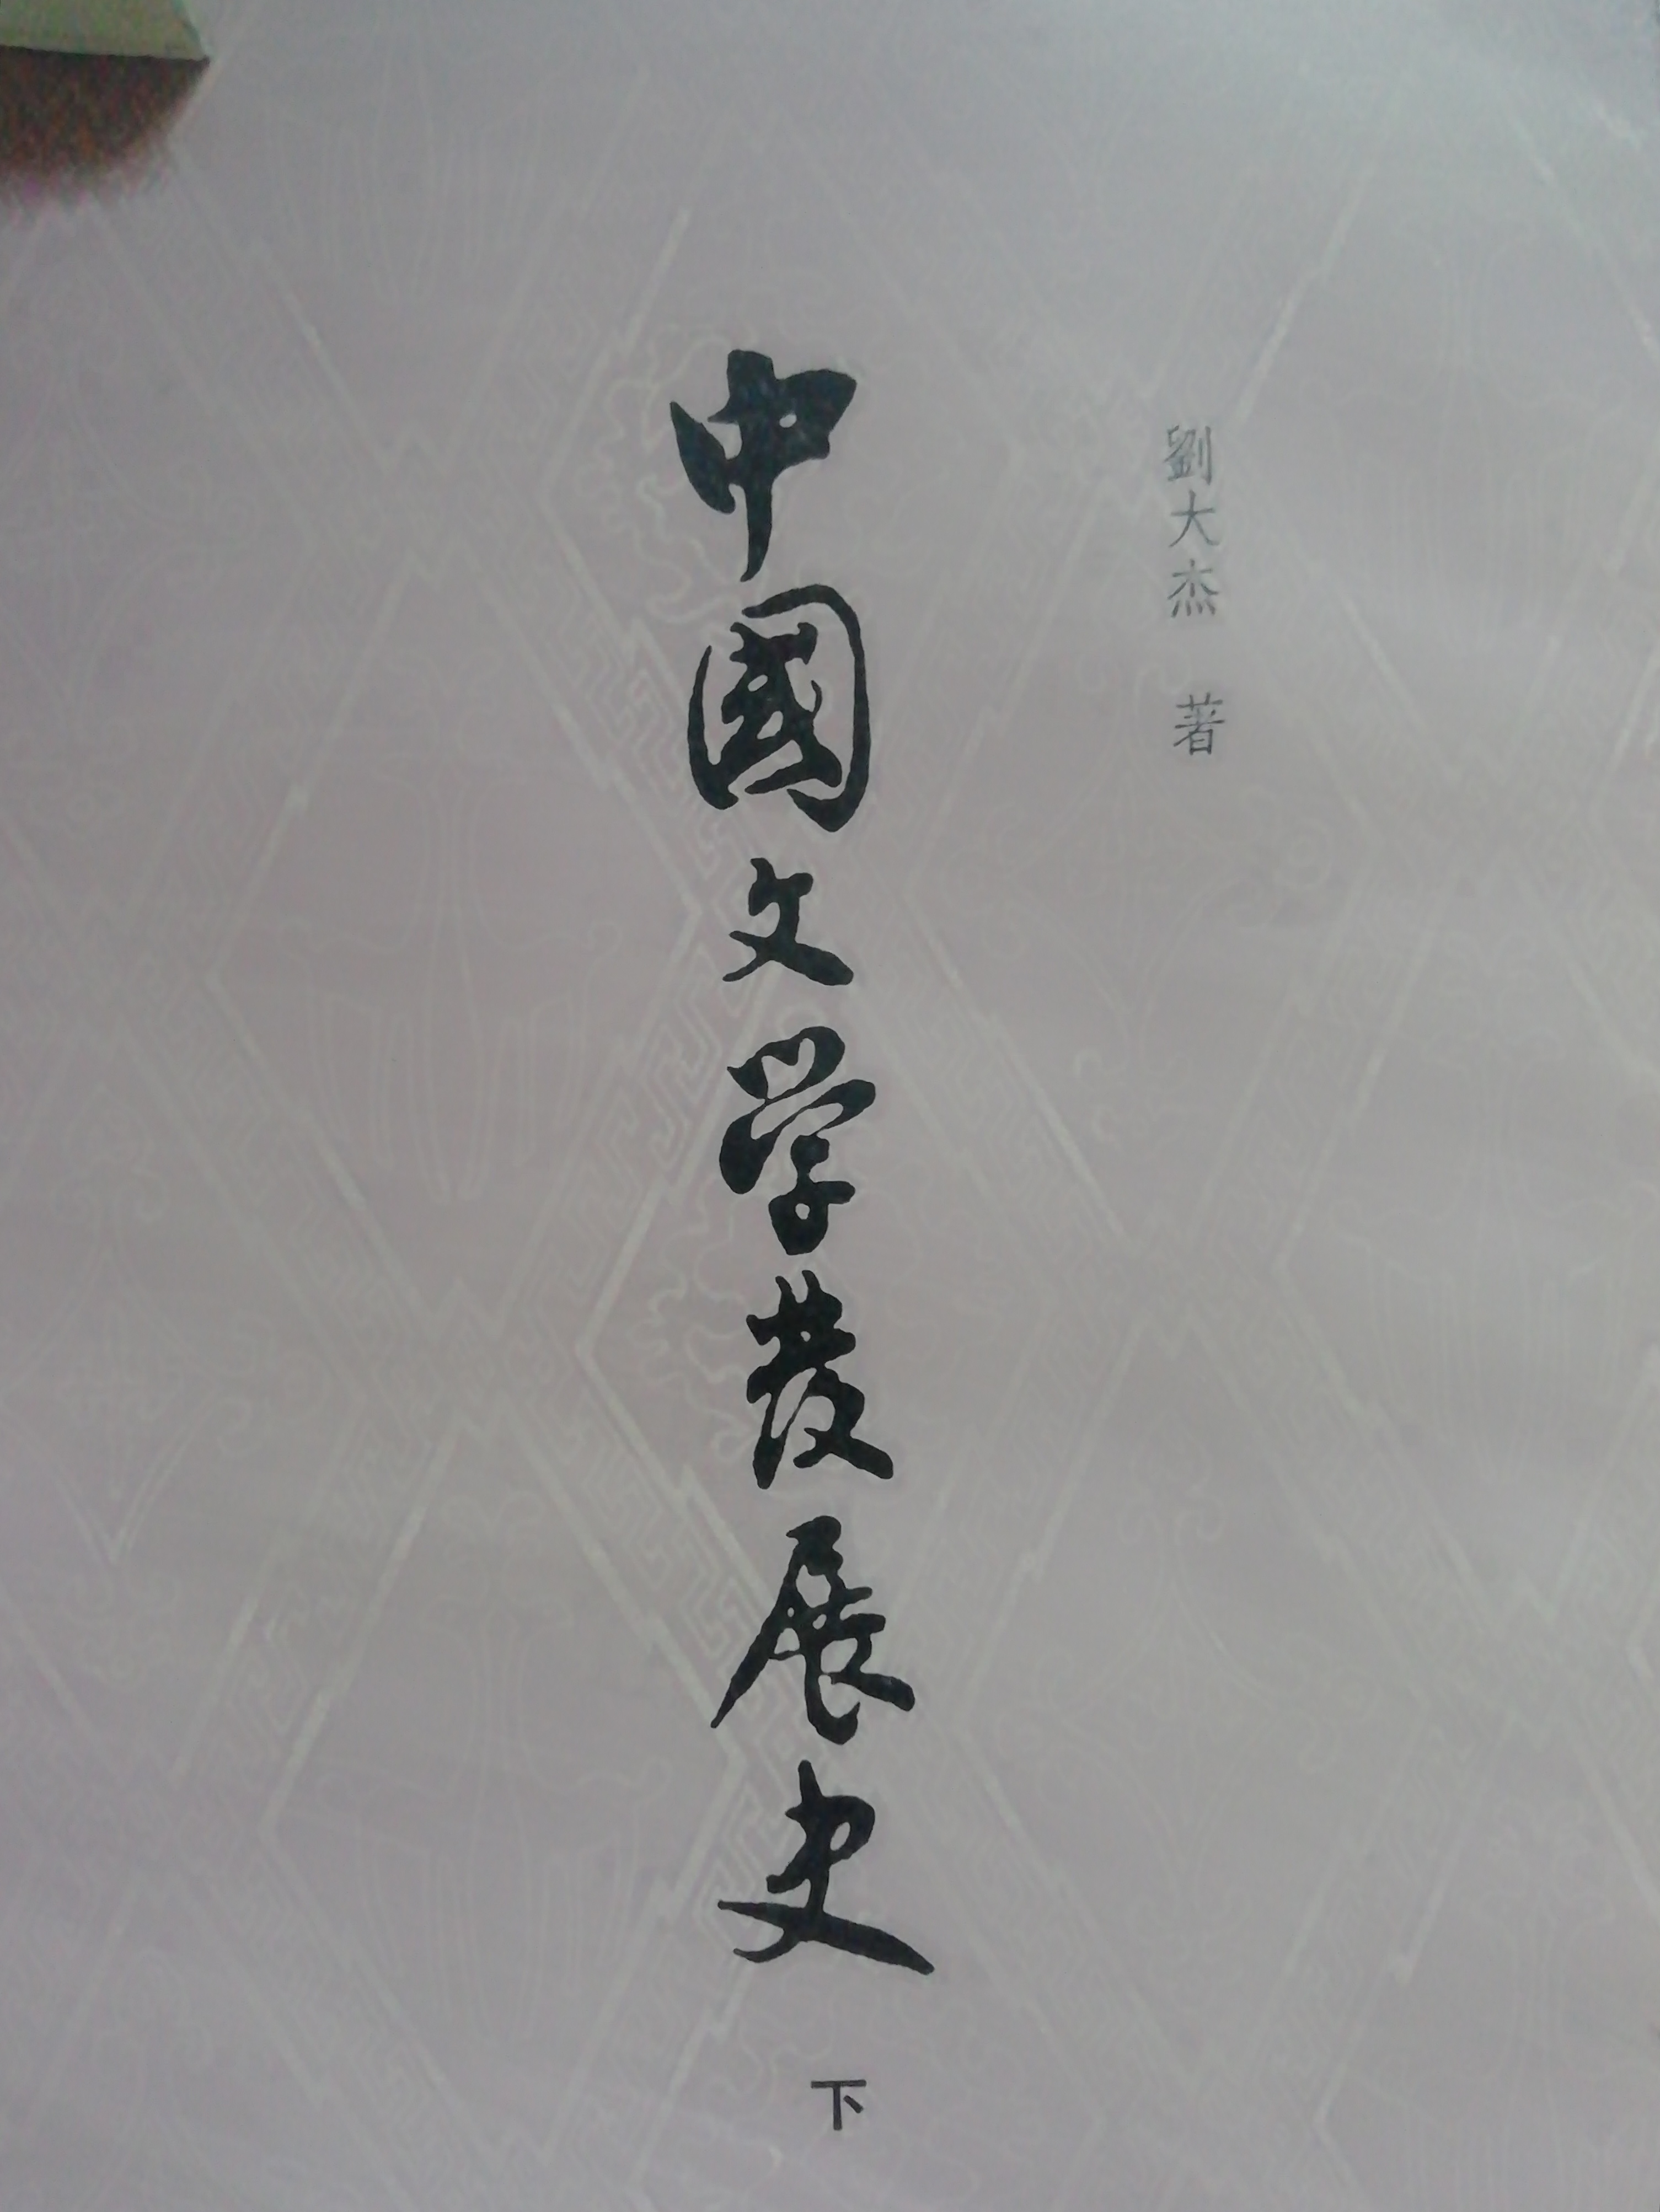 劉大杰 著
中國文学發展史
下